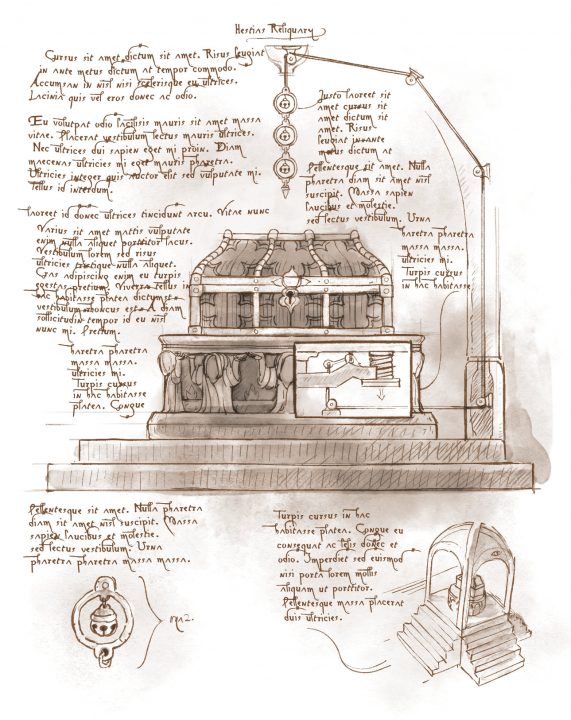 Hestias Reliquary
Cursus sit amet dictum sit amet. Risus feugiat
in ante metus dictum at tempor commodo.
Accumsan in nisl nisi scelerisque eu ultrices.
Lacinia quis vel eros donec ac odio.
Eu volutpat odio facilisis mauris sit amet massa
vitae. Placerat vestibulum lectus mauris ultrices.
Nec ultrices dui sapien eget mi proin. Diam
maecenas ultricies mi eget mauris pharetra.
Ultricies integer quis auctor elit sed vulputate mi.
Tellus id interdum.
laoreet id donec ultrices tincidunt arcu. Vitae nunc
Varius sit amet mattis vulputate
enim nulla aliquet porttitor lacus.
Vestibulum lorem sed risus
ultricies tristique nulla aliquet.
Cras adipiscing enim eu turpis
egestas pretium. Viverra tellus in
hac habitasse platea dictumst
vestibulum rhoncus est. A diam
sollicitudin tempor id eu nisl
nunc mi. Pretium.
haretra pharetra
massa massa.
ultricies mi.
Turpis cursus
in hac habitasse
platea. Congue
Justo laoreet sit
amet cursus sit
amet dictum sit
amet. Risus
feugiat in ante
metus dictum at
Pellentesque sit amet. Nulla
pharetra diam sit amet nisl
suscipit. Massa sapien
faucibus et molestie.
sed lectus vestibulum. Urna
haretra pharetra
massa massa.
ultricies mi.
Turpis cursus
in hac habitasse
Pellentesque sit amet. Nulla pharetra
diam sit amet nisl suscipit. Massa
sapien faucibus et molestie.
sed lectus vestibulum. Urna
pharetra pharetra massa massa.
Turpis cursus in hac
habitasse platea. Congue eu
consequat ac felis donec et
odio. Imperdiet sed euismod
nisi porta lorem mollis
aliquam ut porttitor.
Pellentesque massa placerat
duis ultricies.